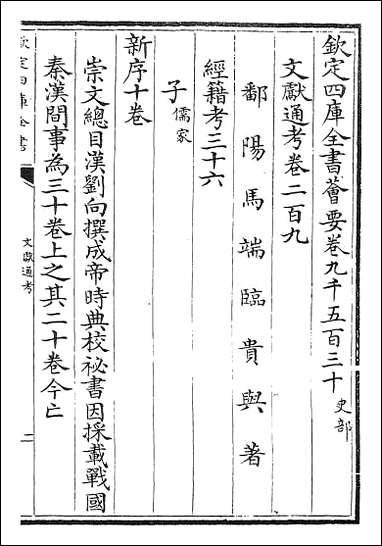 欽定四庫全書薈要卷九千五百三十史部
文獻通考卷二百九
鄱陽馬端臨貴與著
經籍考三十六
子儒家
新序十卷
崇文總目漢劉向撰成帝時典校祕書因採載戰國
秦漢間事為三十卷上之其二十卷今亡
欽定四庫全書
文獻通考
一